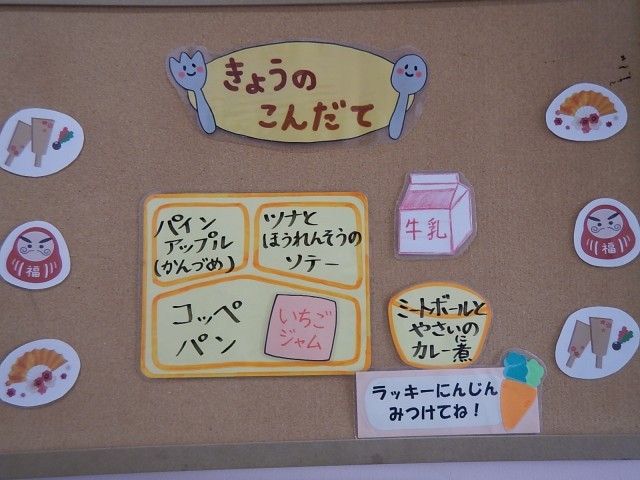 きょうの
こんだて
パイン
アップル
(かんづめ)
ツナと
ほうれんそうの
ソテー
コッペ
パン
いちご
ジャム
牛乳
ミートボールと
やさいの
カレー煮
に
ラッキーにんじん
みつけてね!
福
福